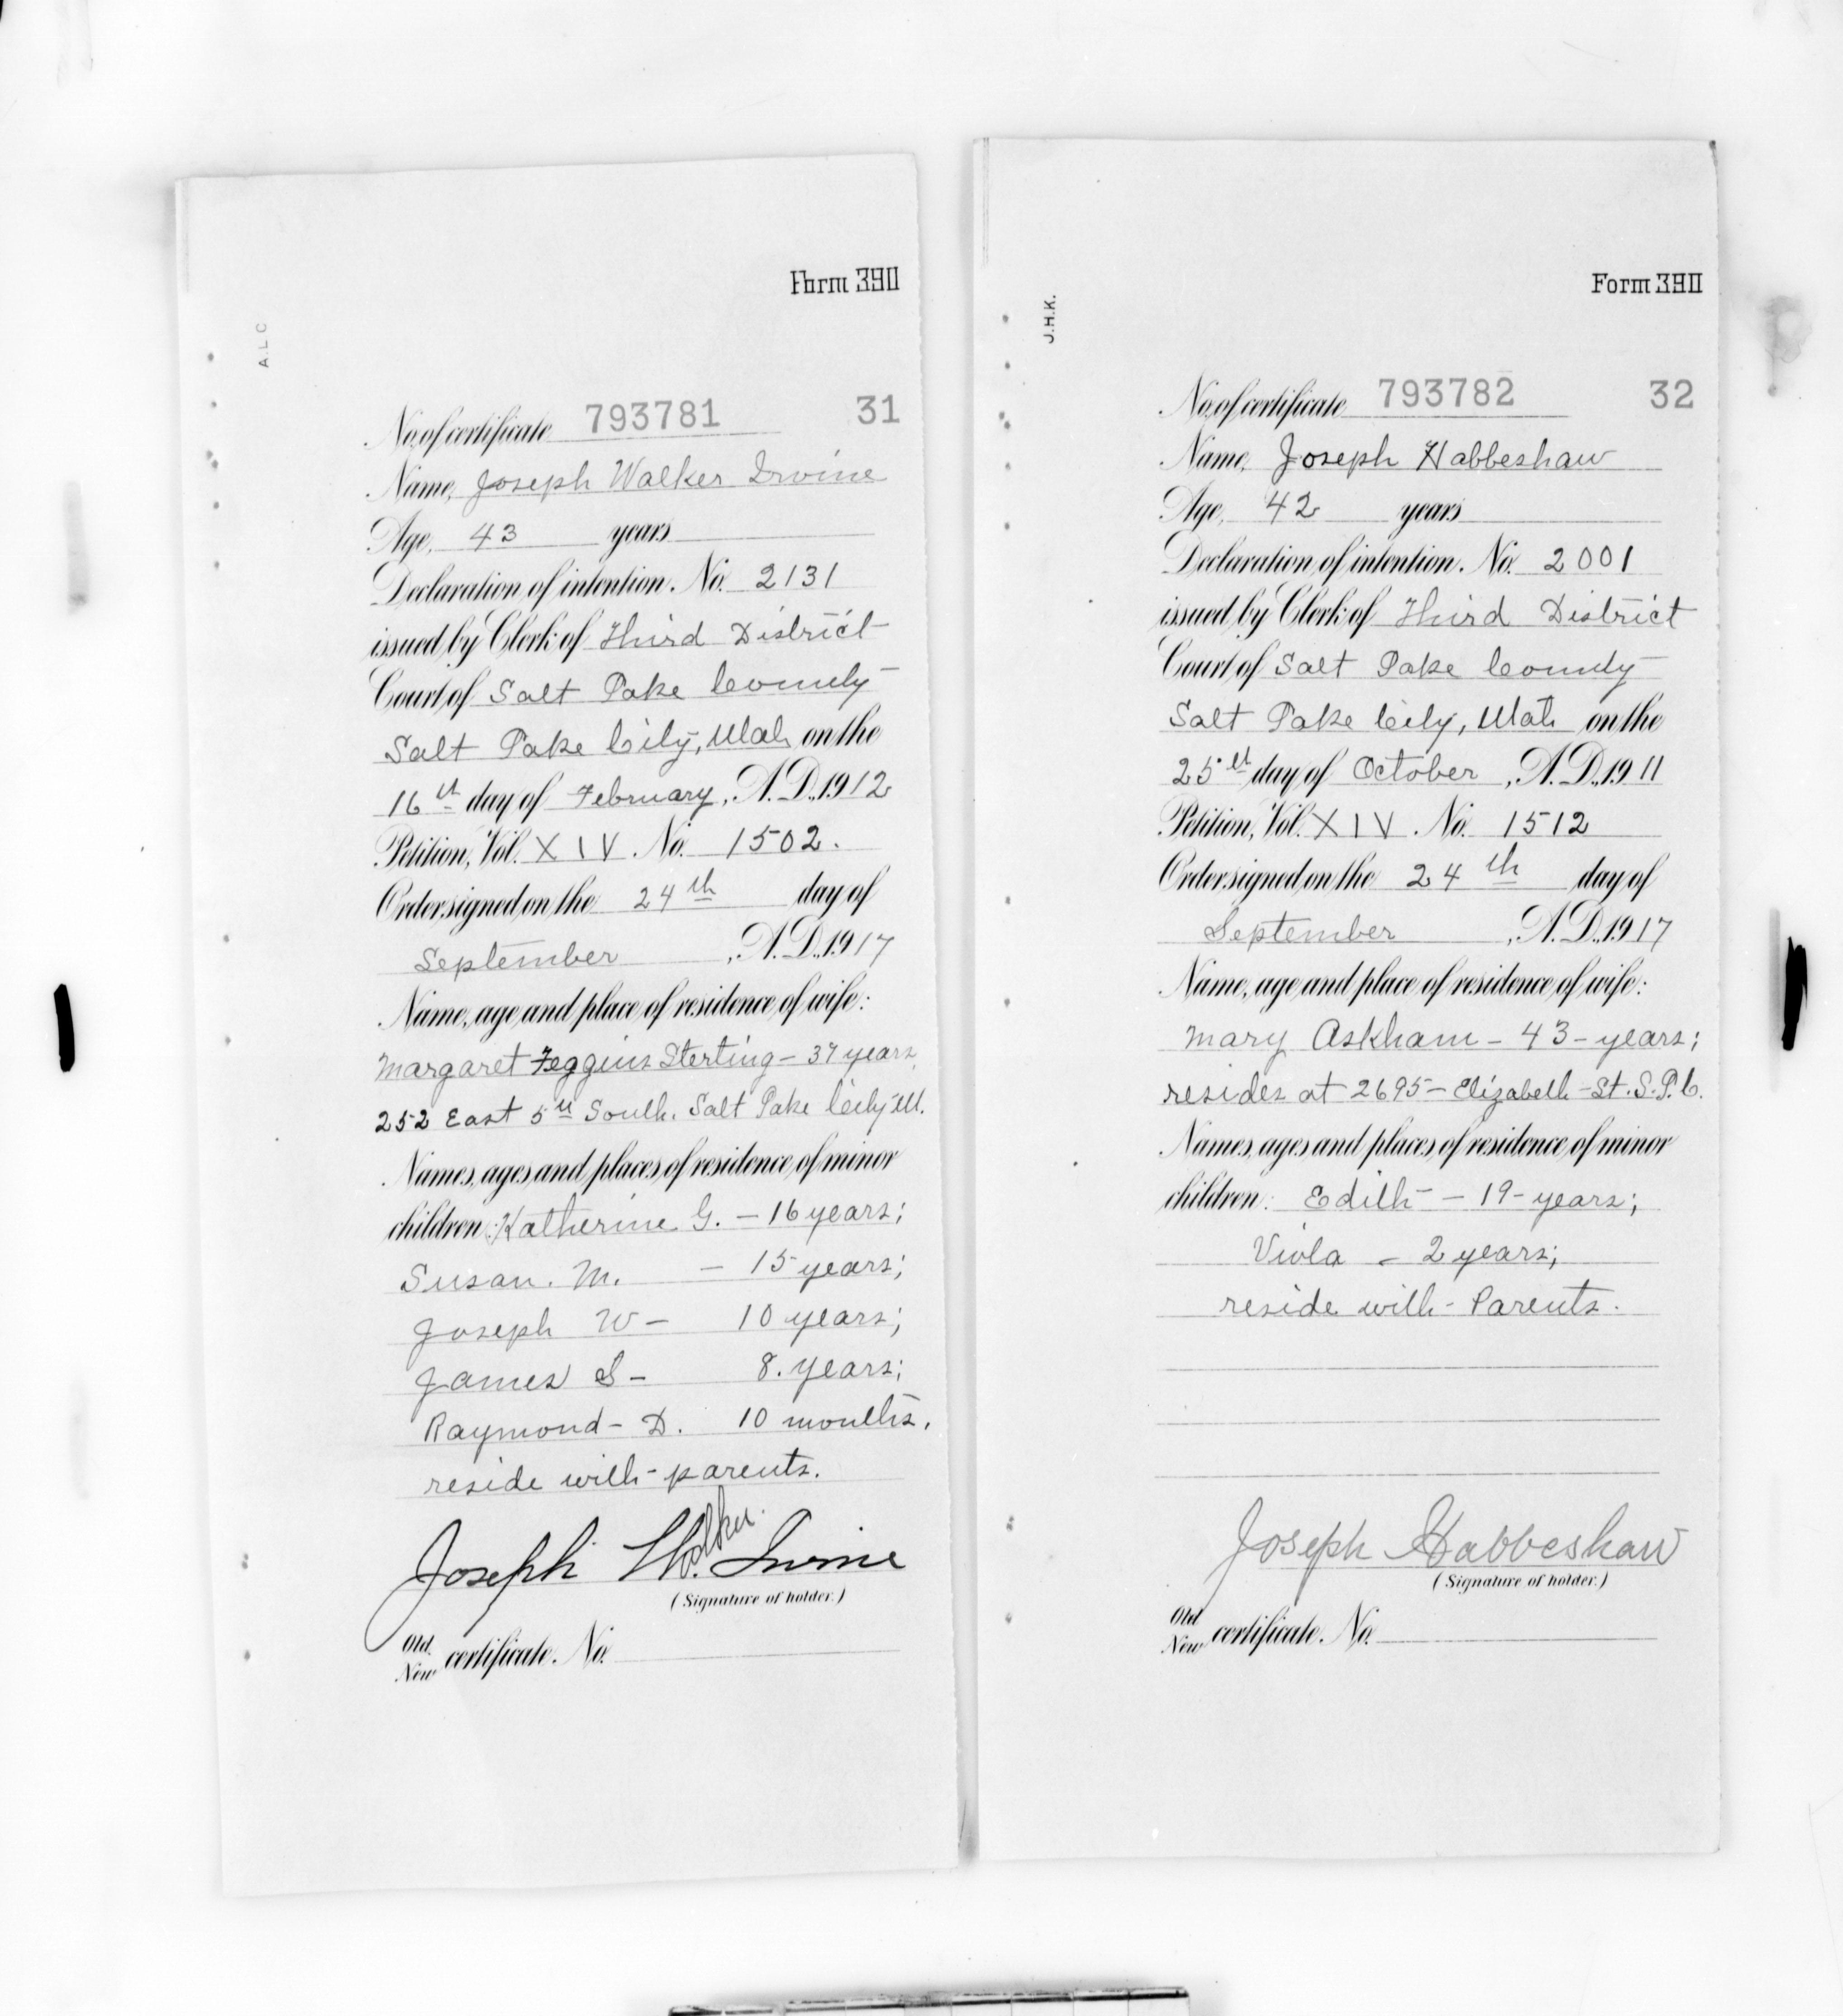 Form 390
A.L.C
No. of certificate 793781 31
Name, Joseph Walker Irvine
Age, 43 years
Declaration of intention. No. 2131
issued by Clerk of Third District
Court of Salt Lake County
Salt Lake City, Utah on the
16th day of February, A.D., 1912
Petition, Vol. XIV. No. 1502.
Order signed on the 24th day of
September, A.D., 1917
Name, age and place of residence of wife:
Margaret Feggins Sterting - 37 years,
252 East 5th South. Salt Lake City Ut.
Names, ages and places of residence of minor
children: Katherine G. - 16 years;
Susan. M. - 15 years;
Joseph W - 10 years;
James S - 8. years;
Raymond - D. 10 months,
reside with parents.
Joseph Walker. Irvine
(Signature of holder.)
Old
New certificate. No.
Form 390
J.H.K.
No. of certificate 793782 32
Name, Joseph Habbeshaw
Age, 42 years
Declaration of intention. No. 2001
issued by Clerk of Third District
Court of Salt Lake County
Salt Lake City, Utah on the
25th day of October, A.D., 1911
Petition, Vol. XIV. No. 1512
Order signed on the 24th day of
September, A.D., 1917
Name, age and place of residence of wife:
Mary Askham - 43 - years;
resides at 2695 - Elizabeth - St. S.L.C.
Names, ages and places of residence of minor
children: Edith - 19 - years;
Viola - 2 years;
reside with - Parents.
Joseph Habbeshaw
(Signature of holder.)
Old
New certificate. No.